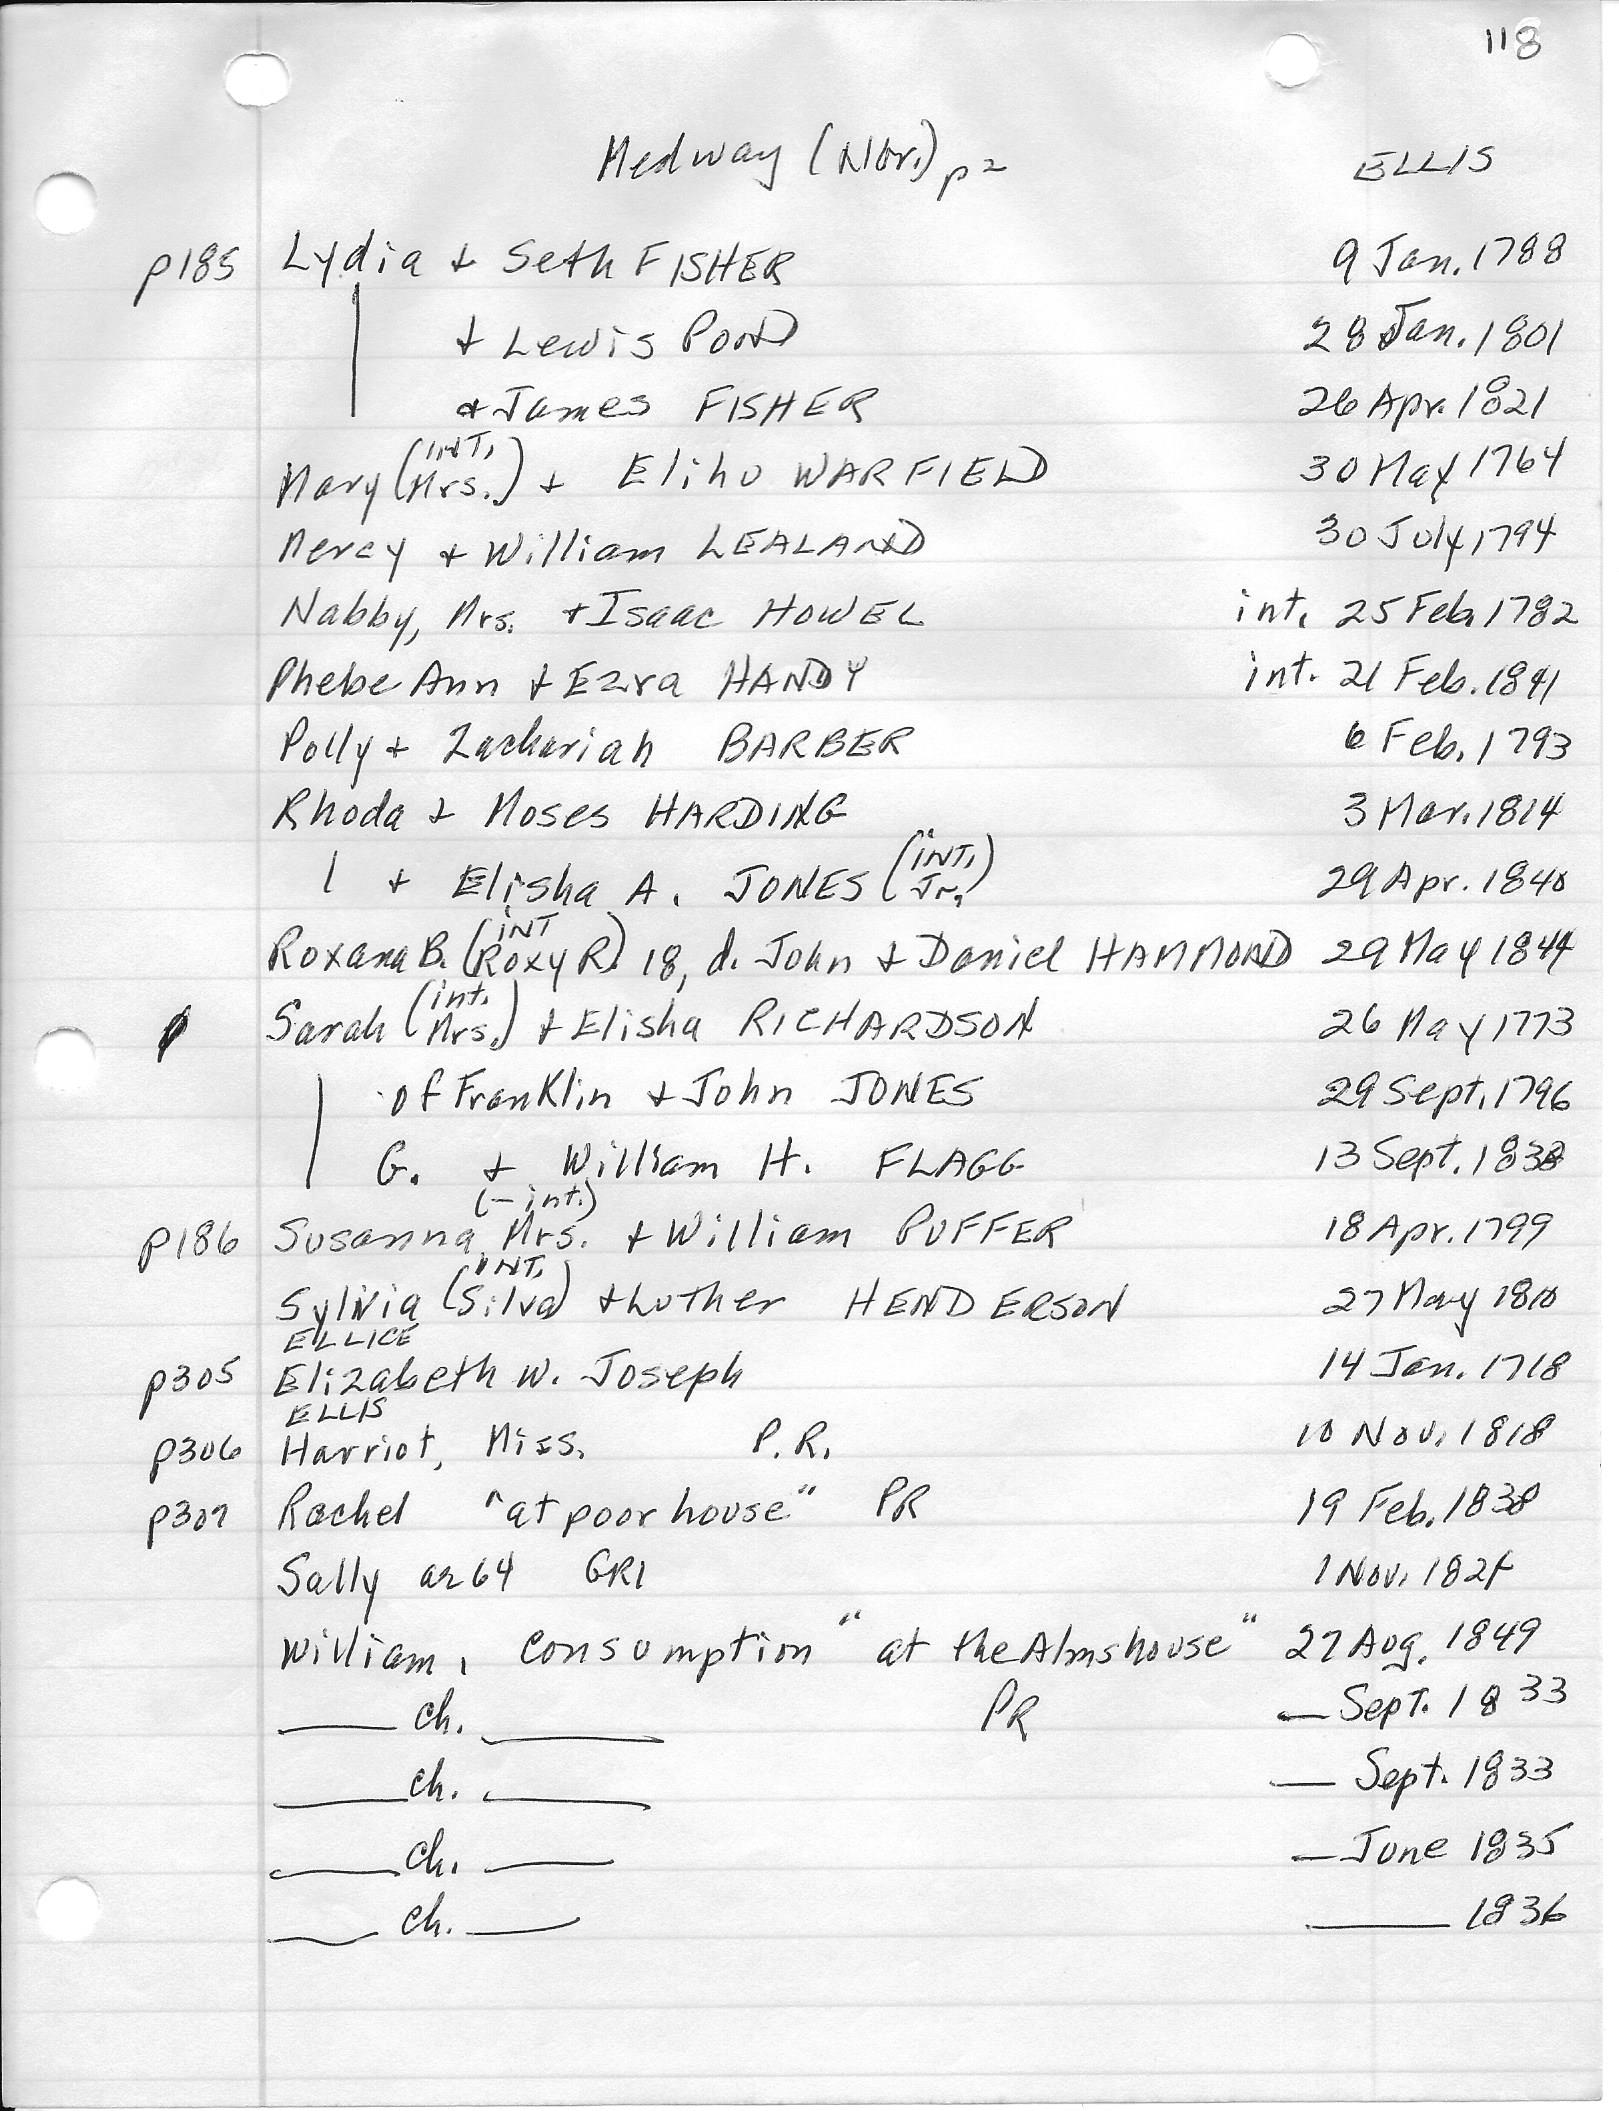 118
Medway (Nor.) p2 ELLIS
p185 Lydia + Seth FISHER 9 Jan. 1788
+ Lewis POND 28 Jan. 1801
+ James FISHER 26 Apr. 1821
Mary (INT. Mrs.) + Elihu WARFIELD 30 May 1764
Mercy + William LEALAND 30 July 1794
Nabby, Mrs. + Isaac HOWEL int. 25 Feb. 1782
Phebe Ann + Ezra HANDY int. 21 Feb. 1841
Polly + Zachariah BARBER 6 Feb. 1793
Rhoda + Moses HARDING 3 Mar. 1814
+ Elisha A. JONES (INT. Jr.) 29 Apr. 1840
Roxana B. (INT Roxy R.) 18, d. John + Daniel HAMMOND 29 May 1844
Sarah (int. Mrs.) + Elisha RICHARDSON 26 May 1773
of Franklin + John JONES 29 Sept. 1796
G. + William H. FLAGG 13 Sept.
(- int.)
p186 Susanna, Mrs. + William PUFFER 18 Apr. 1799
Sylvia (INT. Silva) + Luther HENDERSON 27 May 1810
ELLICE
p305 Elizabeth w. Joseph 14 Jan. 1718
ELLIS
p306 Harriot, Miss. P.R. 10 Nov. 1818
p307 Rachel "at poor house" PR 19 Feb. 1838
Sally ae 64 GR1 1 Nov.
William, consumption "at the Almshouse" 27 Aug. 1849
— ch. — PR — Sept. 1833
— ch. — — Sept. 1833
— ch. — — June 1835
— ch. — — 1836